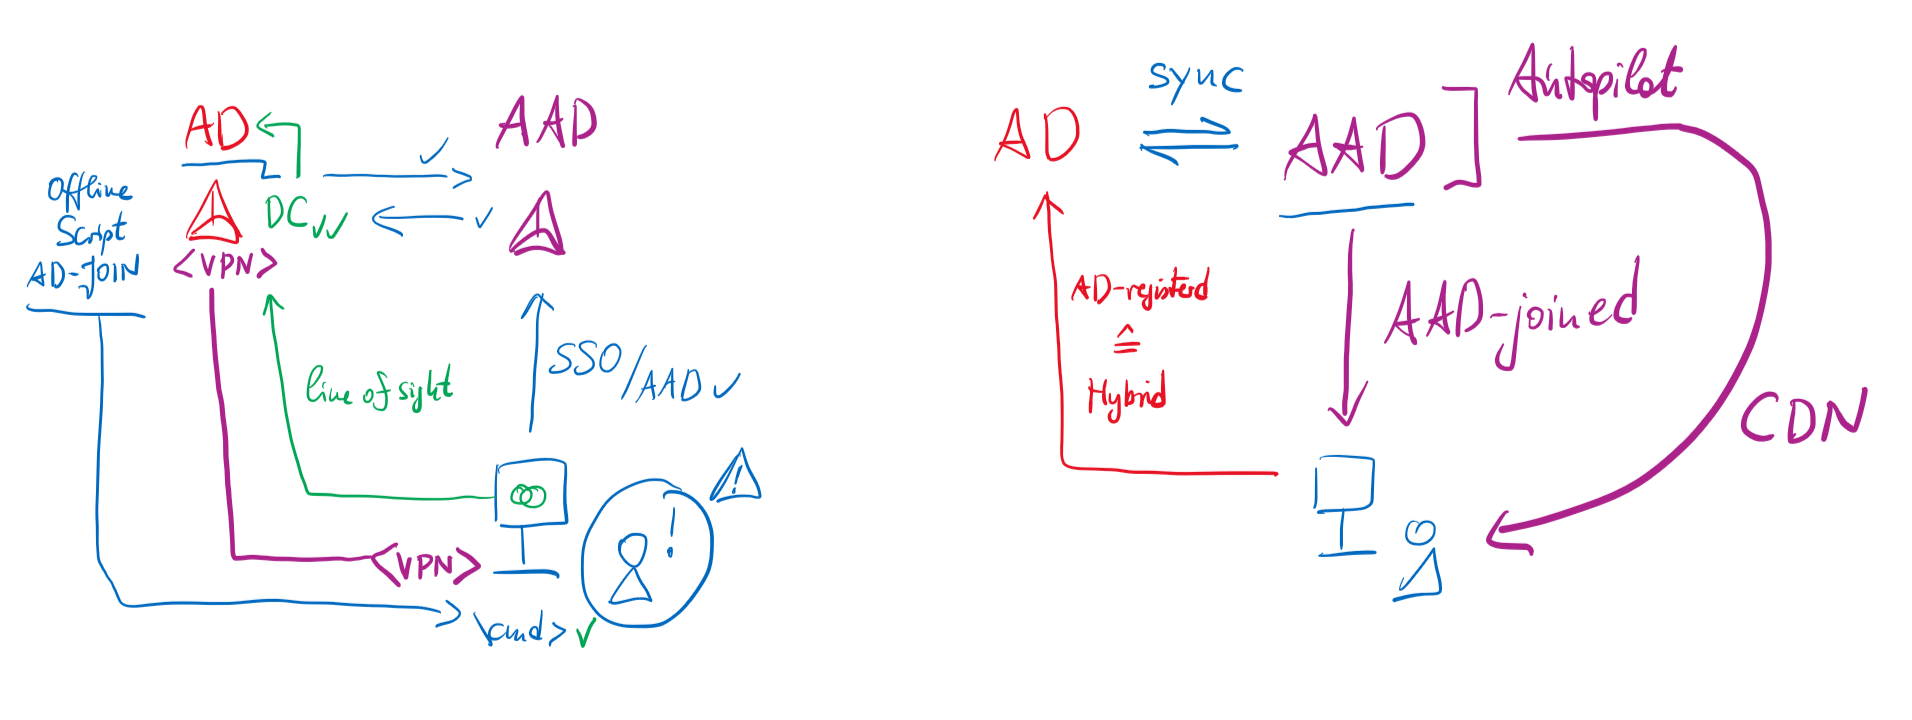 AD
AAD
Offline
Script
AD-JOIN
DC
<VPN>
line of sight
SSO/AAD
!
!
<VPN>
\cmd>
sync
AD
AAD
]
Autopilot
AD-registerd
≙
Hybrid
AAD-joined
CDN